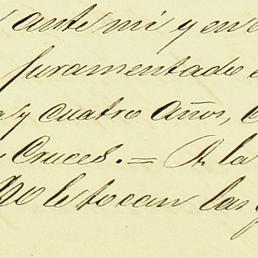 ante mi y en
juramentado
y cuatro años,
Cruces. = A la
No le tocan las